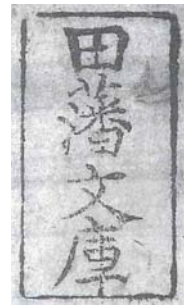 田藩文庫